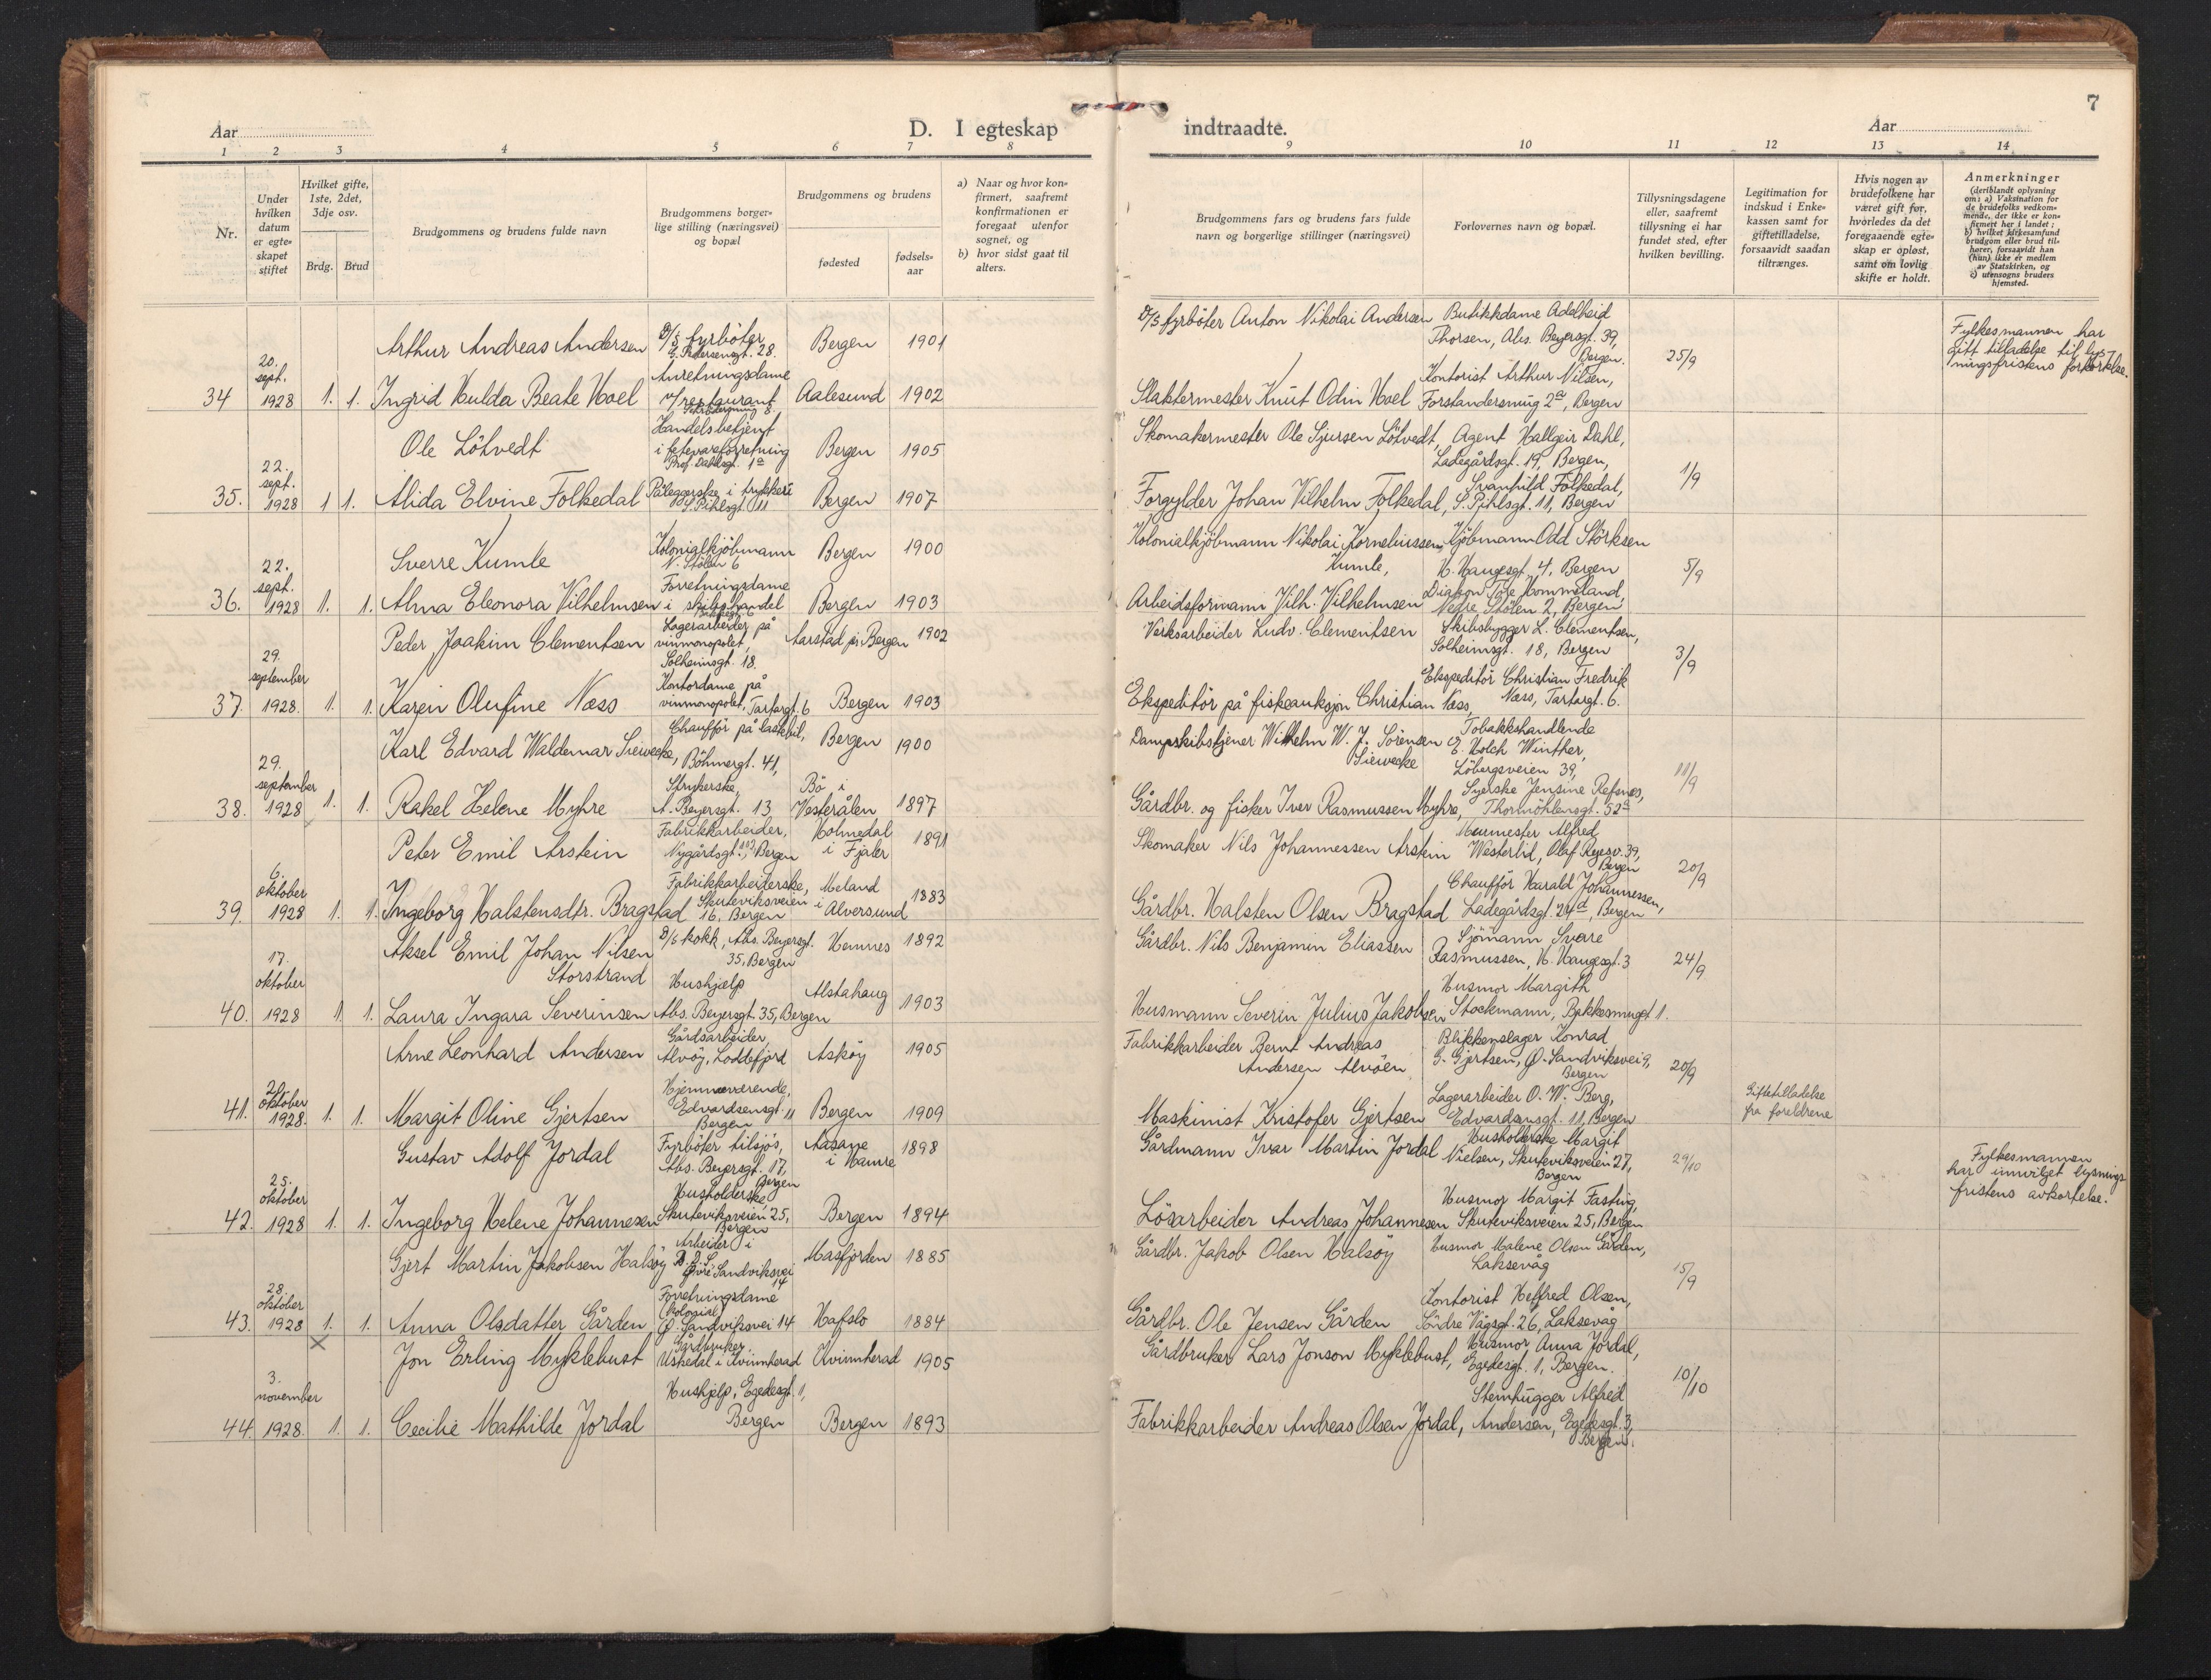 7
Aar
D. I egteskap
indtraadte.
Aar
1 2 3 4 5 6 7 8 9 10 11 12 13 14
Nr.
Under hvilken datum er egte-skapet stiftet
Hvilket gifte, 1ste, 2det, 3dje osv.
Brdg. Brud
Brudgommens og brudens fulde navn
Brudgommens borger-lige stilling (næringsvei) og bopæl
Brudgommens og brudens
fødested
fødsels-aar
a) Naar og hvor kon-firmert, saafremt konfirmationen er foregaat utenfor sognet, og
b) hvor sidst gaat til alters.
Brudgommens fars og brudens fars fulde navn og borgerlige stillinger (næringsvei)
Forlovernes navn og bopæl.
Tillysningsdagene eller, saafremt tillysning ei har fundet sted, efter hvilken bevilling.
Legitimation for indskud i Enke-kassen samt for giftetilladelse, forsaavidt saadan tiltrænges.
Hvis nogen av brudefolkene har været gift før, hvorledes da det foregaaende egte-skap er opløst, samt om lovlig skifte er holdt.
Anmerkninger
(deriblandt oplysning om: a) Vaksination for de brudefolks vedkom-mende, der ikke er kon-firmert her i landet; b) hvilket kirkesamfund brudgom eller brud til-hører, forsaavidt han (hun) ikke er medlem av Statskirken, og c) utensogns bruders hjemsted.
Arthur Andreas Andersen D/S fyrböter Bergen 1901
G. Pedersensgt. 28.
D/S fyrböter Anton Nikolai Andersen Butikkdame Adelheid
Thorsen, Abs. Beyersgt. 39,
Bergen. 25/9
Fylkesmannen har
gitt tilladelse til lys-
ningsfristens forkortelse.
34 20. sept. 1928 1. 1. Ingrid Hulda Beate Hoel Anretningsdame
v/restaurant Aalesund 1902
Slaktermester Knut Odin Hoel Kontorist Arthur Nilsen,
Forstandersmug 2a, Bergen
Ole Lötvedt Handelsbetjent
i fetevareforretning Bergen 1905
Prof. Dahlsgt. 1a
Skomakermester Ole Sjursen Lötvedt, Agent Hallgeir Dahl,
Ladegårdsgt. 19, Bergen, 1/9
35. 22. sept. 1928 1 1. Alida Elvine Folkedal Påleggerske i trykkeri
S. Pihlsgt. 11 Bergen 1907
Forgylder Johan Vilhelm Folkedal, Svanhild Folkedal,
S. Pihlsgt. 11, Bergen
Sverre Kumle Kolonialkjöbmann Bergen 1900
N. Stölen 6
Kolonialkjöbmann Nikolai Korneliussen Kumle, Kjöbmann Odd Störksen
H. Haugesgt. 4, Bergen 5/9
36. 22. sept. 1928 1. 1. Alma Eleonora Vilhelmsen Forretningsdame
i skibshandel Bergen 1903
Arbeidsformann Vilh. Vilhelmsen Diakon Tore Hommeland,
Nedre Stölen 2, Bergen
Peder Joakim Clementsen Lagerarbeider på
vinmonopolet, Aarstad pr. Bergen 1902
Solheimsgt. 18.
Verksarbeider Ludv. Clementsen Skibsbygger L. Clementsen,
Solheimsgt. 18, Bergen 3/9
37. 29. september 1928. 1. 1. Karen Olufine Næss Kontordame på
vinmonopolet, Tartargt. 6 Bergen 1903
Ekspeditör på fiskeauksjon Christian Næss, Ekspeditör Christian Fredrik
Næss, Tartargt. 6.
Karl Edvard Waldemar Siewecke, Chafför på lastebil, Bergen 1900
Böhmergt. 41,
Dampskibstjener Wilhelm W. J. Sörensen Siewecke Tobakkshandlende
E. Holch Winther,
Löbergsveien 39, 11/9
38. 29. september 1928 1. 1. Rakel Helene Myhre Strykerske,
A. Beyersgt. 13 Bö i Vesterålen 1897
Gårdbr. og fisker Iver Rasmussen Myhre, Syerske Jensine Refsnes,
Thormöhlensgt. 52a
Peter Emil Arstein Fabrikkarbeider,
Nygårdsgt. 103, Bergen Holmedal i Fjaler 1891
Skomaker Nils Johannessen Arstein Murmester Alfred
Westerlid, Olaf Ryesv. 39,
Bergen 20/9
39. 6. oktober 1928 1. 1. Ingeborg Halstensdtr. Bragstad Fabrikkarbeiderske,
Skuteviksveien
16, Bergen Meland i Alversund 1883
Gårdbr. Halsten Olsen Bragstad Chafför Harald Johannessen,
Ladegårdsgt. 24d, Bergen
Aksel Emil Johan Nilsen Storstrand D/S kokk, Abs. Beyersgt.
35, Bergen Hemnes 1892
Gårdbr. Nils Benjamin Eliassen Sjömann Svare
Rasmussen, H. Haugesgt. 3 24/9
40. 17. oktober 1928 1. 1. Laura Ingara Severinsen Hushjelp
Abs. Beyersgt. 35, Bergen Alstahaug 1903
Husmann Severin Julius Jakobsen Husmor Margith
Stockmann, Bakkesmuget 1.
Arne Leonhard Andersen Gårdsarbeider,
Alvöy, Loddefjord Asköy 1905
Fabrikkarbeider Bernt Andreas Andersen Alvöen Blikkenslager Konrad
G. Gjertsen, Ø. Sandviksvei 9,
Bergen 20/9
41. 20. oktober 1928. 1. 1. Margit Oline Gjertsen Hjemmeværende,
Edvardsensgt. 11
Bergen Bergen 1909
Maskinist Kristofer Gjertsen Lagerarbeider O. W. Berg,
Edvardsensgt. 11, Bergen
Giftetilladelse
fra foreldrene
Gustav Adolf Jordal Fyrböter tilsjös,
Abs. Beyersgt. 17,
Bergen Aasane i Hamre 1898
Gårdmann Ivar Martin Jordal Husholderske Margit
Nielsen, Skuteviksveien 27,
Bergen 29/10
Fylkesmannen
har innvilget lysnings-
fristens avkortelse.
42. 25. oktober 1928 1. 1. Ingeborg Helene Johannesen Husholderske,
Skuteviksveien 25,
Bergen Bergen 1894
Lösarbeider Andreas Johannesen Husmor Margit Fasting,
Skuteviksveien 25, Bergen
Gjert Martin Jakobsen Halsöy Arbeider i
Övre Sandviksvei
14 Masfjorden 1885
Gårdbr. Jakob Olsen Halsöy Husmor Malene Olsen Gården,
Laksevåg 15/9
43. 28. oktober 1928 1. 1. Anna Olsdatter Gården Forretningsdame
(kolonial)
Ø. Sandviksvei 14 Hafslo 1884
Gårdbr. Ole Jensen Gården Kontorist Helfred Olsen,
Söndre Vågsgt. 26, Laksevåg
X
Jon Erling Myklebust Gårdbruker
Uskedal i Kvinnherad Kvinnherad 1905
Gårdbruker Lars Jonson Myklebust, Husmor Anna Jordal,
Egedesgt. 1, Bergen. 10/10
44. 3. november 1928. 1. 1. Cecilie Mathilde Jordal Hushjelp, Egedesgt. 1,
Bergen Bergen 1893
Fabrikkarbeider Andreas Olsen Jordal, Stenhugger Alfred
Andersen, Egedesgt. 3,
Bergen.